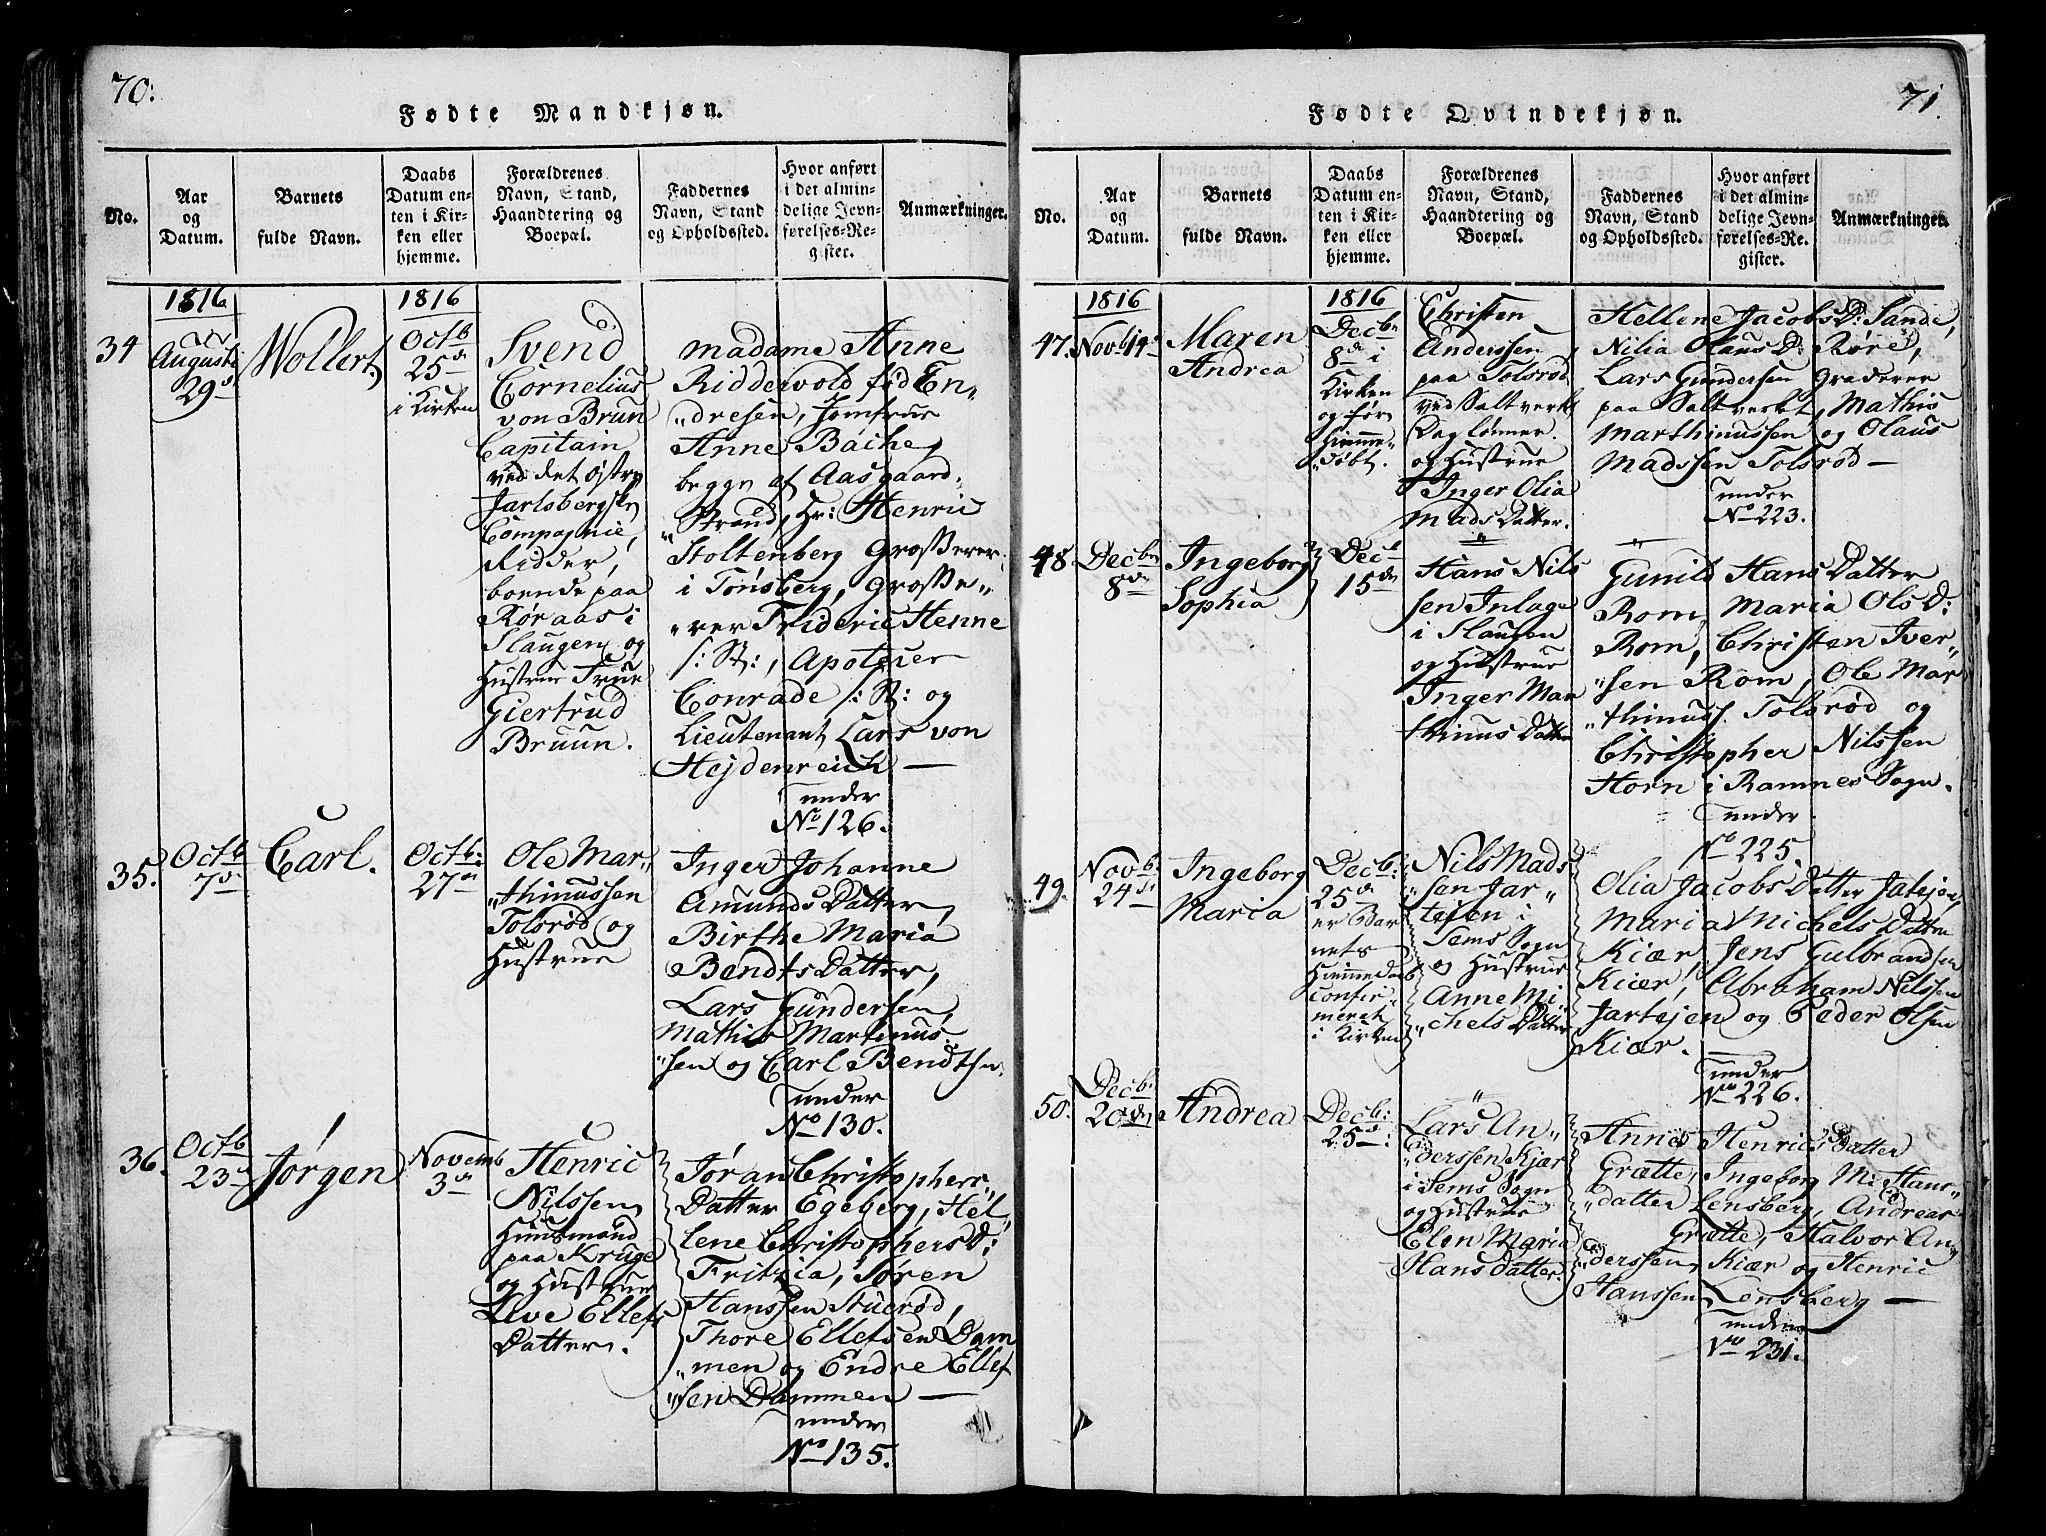 70.
Fødte Mandkjøn.
No.
Aar
og
Datum.
Barnets
fulde Navn.
Daabs
Datum en-
ten i Kir-
ken eller
hjemme.
Forældrenes
Navn, Stand,
Haandtering og
Boepæl.
Faddernes
Navn, Stand
og Opholdssted.
Hvor anført
i det almin-
delige Jevn-
førelses-Re-
gister.
Anmærkninger.
34
1816
Augusti
29
Wollert.
1816
Octb
25
i Kirken
Svend
Cornelius
von Brun
Capitain
ved det østre
Jarlsbergske
Compagnie,
Ridder,
boende paa
Røraas i
Slaugen og
Hustrue Frue
Giertrud
Bruun.
Madame Anne
Riddervold fød En-
dresen, Jomfrue
Anne Bache,
begge af Aasgaard-
Strand, Hr: Henric
Stoltenberg Grosserer
i Tønsberg, Grosse-
rer Frideric Henne
/: St:, Apoteker
Conrade /: St: og
Lieutenant Lars von
Hejdenreich —
under
No 126.
35.
Octb
7
Carl.
Octb:
27
Ole Mar-
thinussen
Tolsrød og
Hustrue
Inger Johanne
Amunds Datter,
Birthe Maria
Bendts Datter,
Lars Gundersen,
Mathis Martinus-
sen og Carl Bendtsen.
under
No 130.
36.
Octb
23
Jørgen
Novemb
3
Henric
Nilssen
Huusmand
paa Kruge
og Hustrue
Live Ellefs
Datter.
Jøran Christophers
Datter Egeberg, Hel-
lene Christophers D:
Fritzia, Søren
Hanssen Stuerød,
Thore Ellefsen Dam-
men og Endre Ellef
sen Dammen —
under
No 135.
71.
Fødte Qvindekjøn.
No.
Aar
og
Datum.
Barnets
fulde Navn.
Daabs
Datum en-
ten i Kir-
ken eller
hjemme.
Forældrenes
Navn, Stand,
Haandtering og
Boepæl.
Faddernes
Navn, Stand
og Opholdssted.
Hvor anført
i det almin-
delige Jevn-
førelses-Re-
gister.
Anmærkninger.
47.
1816
Nov. 14
Maren
Andrea
1816
Decbr
8 i
Kirken
og før
Hiemme-
døbt.
Christen
Anderssen
paa Tolsrød
ved Saltverket
Daglønner.
og Hustrue
Inger Olia
Mads Datter.
Hellene Jacobs D: Sande,
Nilia Olaus D: Røre,
Lars Gundersen Graderer
paa Saltverket, Mathis
Marthinussen og Olaus
Madssen Tolsrød —
under
No 223.
48
Decbr
8
Ingeborg
Sophia
Decb
15
Hans Nils
sen Inlage
i Slaugen
og Hustrue
Inger Mar
thinus Datter
Gunild Hans Datter
Rom, Maria Ols D:
Rom, Christen Iver-
sen Rom, Ole Mar
thinuss. Tolsrød og
Christopher Nilssen
Horn i Ramnes Sogn.
under
No 225.
49.
Novb:
24
Ingeborg
Maria
Decb:
25
er Bar
nets
Hiemmedaab
confir-
meret
i Kirken
Nils Mads
sen Jar-
tejen i
Sems Sogn
og Hustrue
Anne Mi-
chels Datter
Olia Jacobs Datter Jatejen,
Maria Michels Datter
Kiær, Jens Gulbrandsen
Kiær, Abraham Nilssen
Jartejen og Peder Olsen
Kiær.
under
No 226.
50.
Decb:
20
Andrea
Decb:
25
Lars An-
derssen Kjær
i Sems Sogn
og Hustrue
Elen Maria
Hans datter.
Anne Henrics Datter
Grætte, Ingeborg M: Hans-
datter Lensberg, Andreas
Grætte, Halvor An
derssen Kiær og Henric
Hanssen Lensberg —
under
No 231.